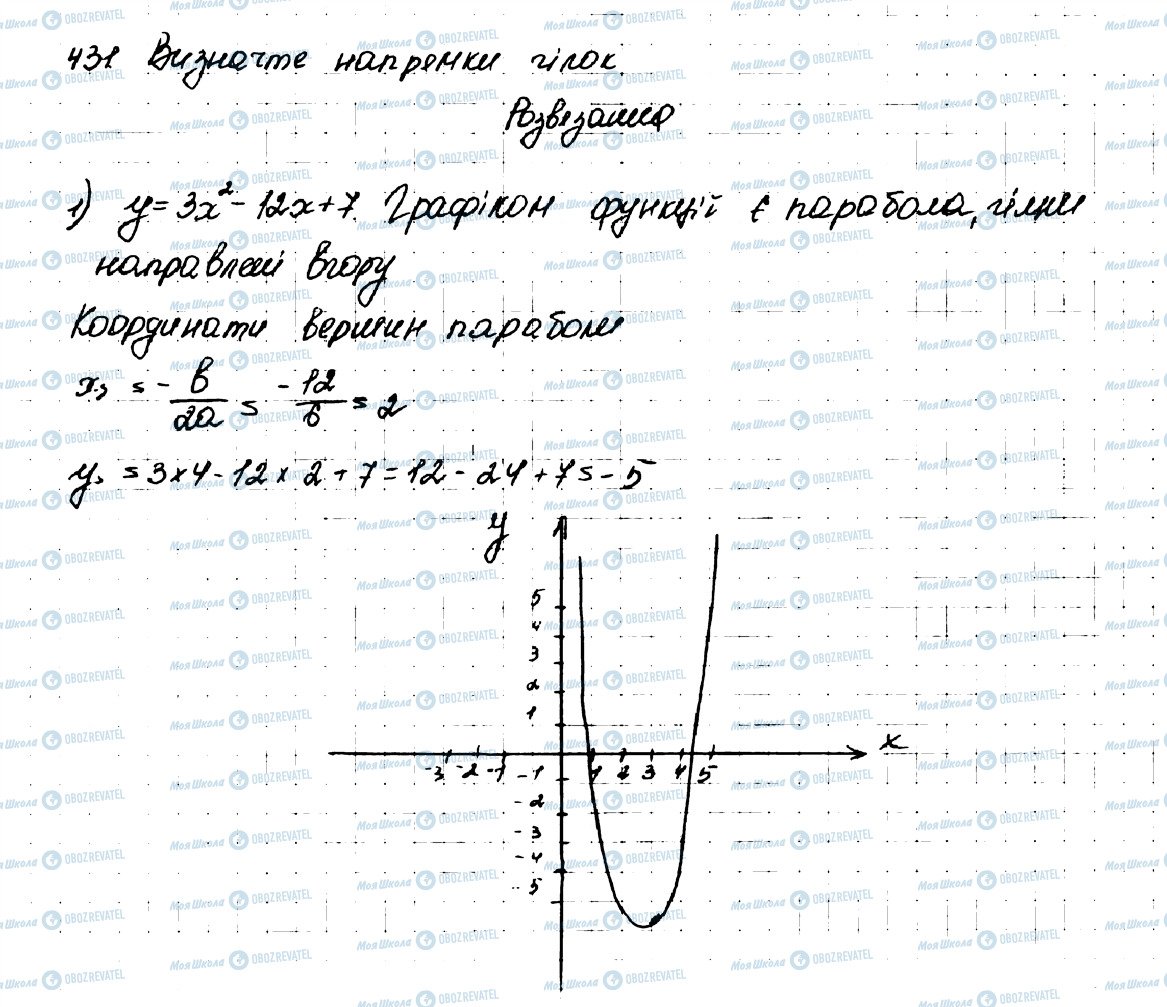 431 Визначте напрямки гілок.
Розвязання
1) y = 3x² - 12x + 7. Графіком функцій є парабола, гілки
направлені вгору
Координати вершин параболи
x₃ = - b/2a = - 12/6 = 2
y₃ = 3 × 4 - 12 × 2 + 7 = 12 - 24 + 7 = - 5
y
5
4
3
2
1
x
-3 -2 -1 -1 1 2 3 4 5
-2
-3
-4
-5
Моя Школа OBOZREVATEL